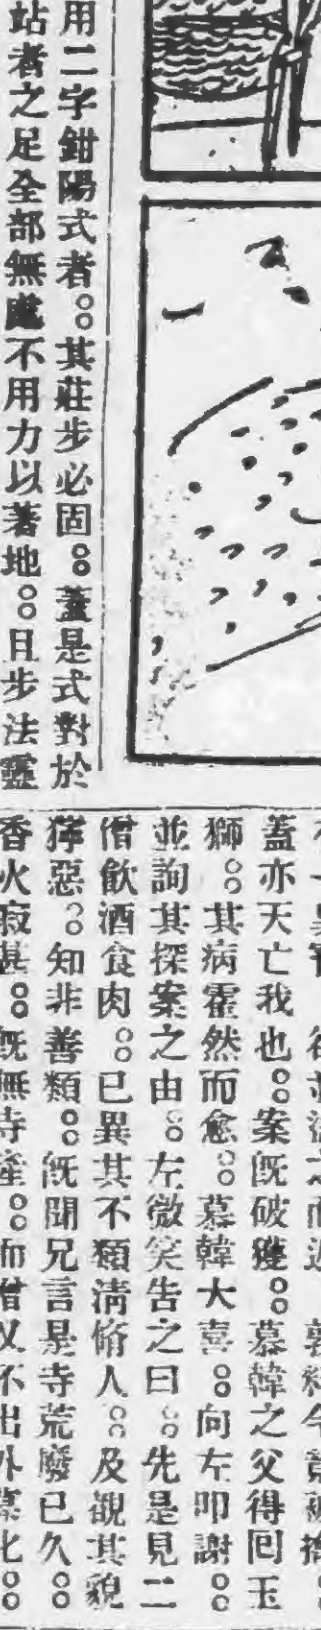 用二字鉗陽式者。其莊步必固。蓋是式對於
站者之足全部無處不用力以著地。且步法靈
蓋亦天亡我也。案旣破獲。慕韓之父得囘玉
獅。其病霍然而愈。慕韓大喜。向左叩謝。
並詢其探案之由。左微笑告之曰。先是見二
僧飲酒食肉。已異其不類清脩人。及覩其貌
獰惡。知非善類。旣聞兄言是寺荒廢已久。
香火寂甚。旣無寺產。而僧又不出外募化。